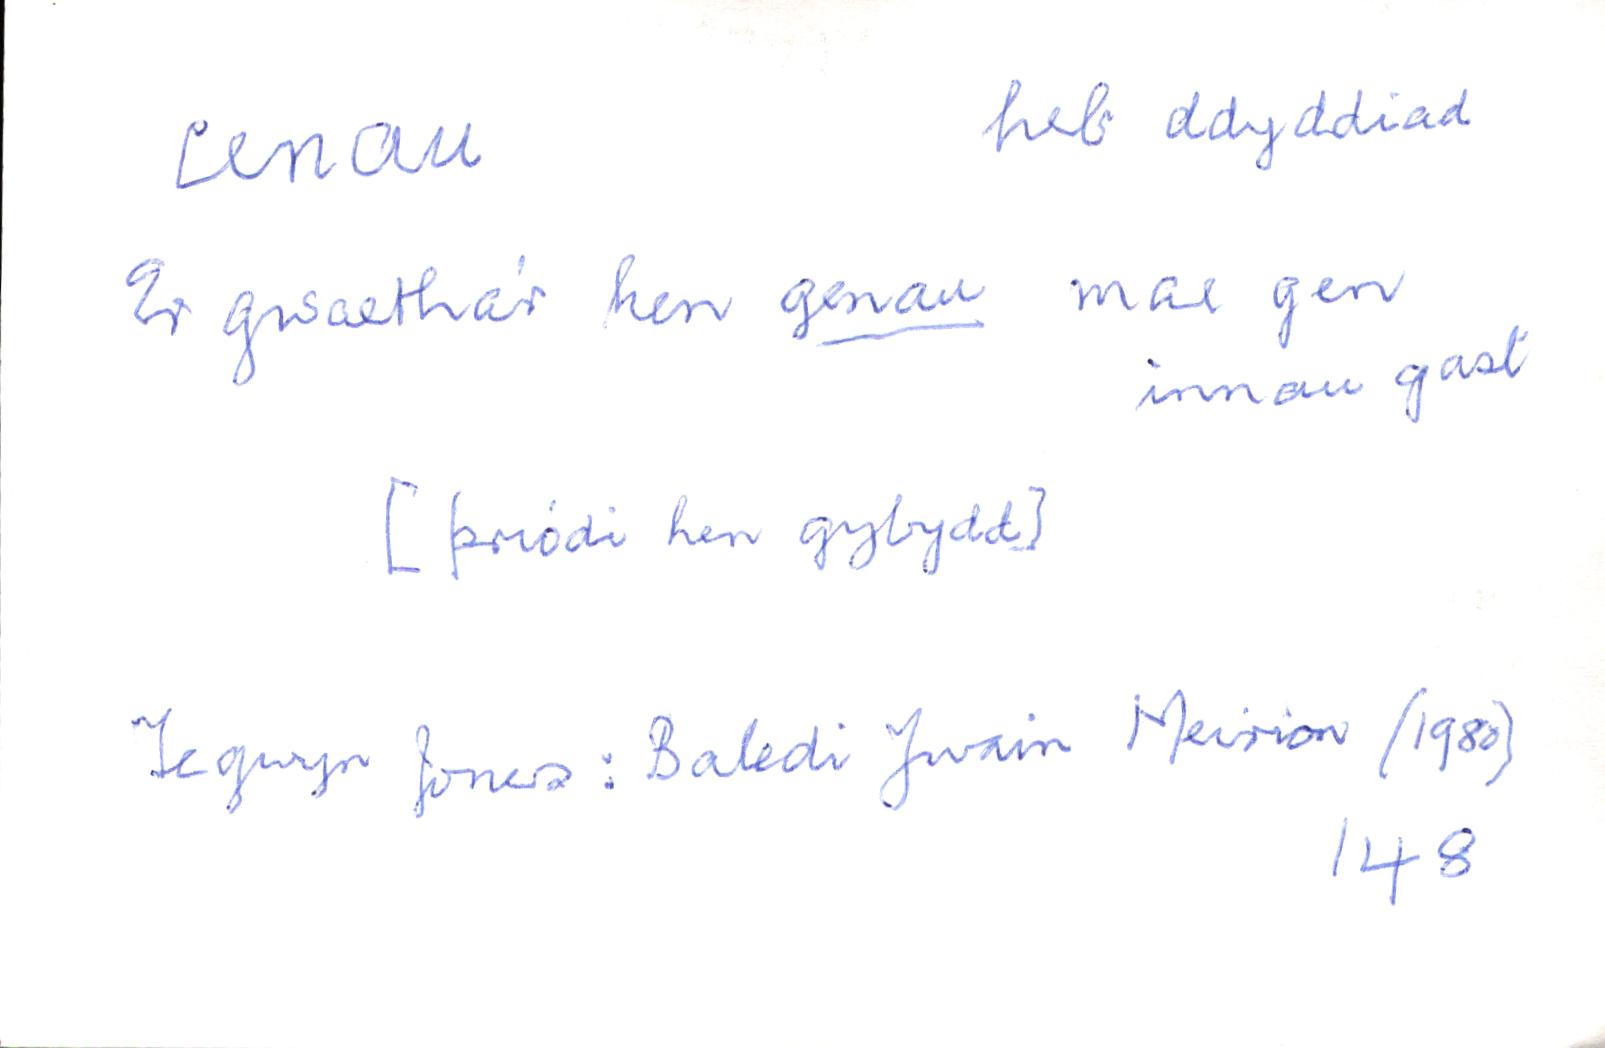 cenau heb ddyddiad
Er gwaetha'r hen genau mae gen
innau gast
[priódi hen gybydd]
Tegwyn Jones: Baledi Ywain Meirion (1980)
148